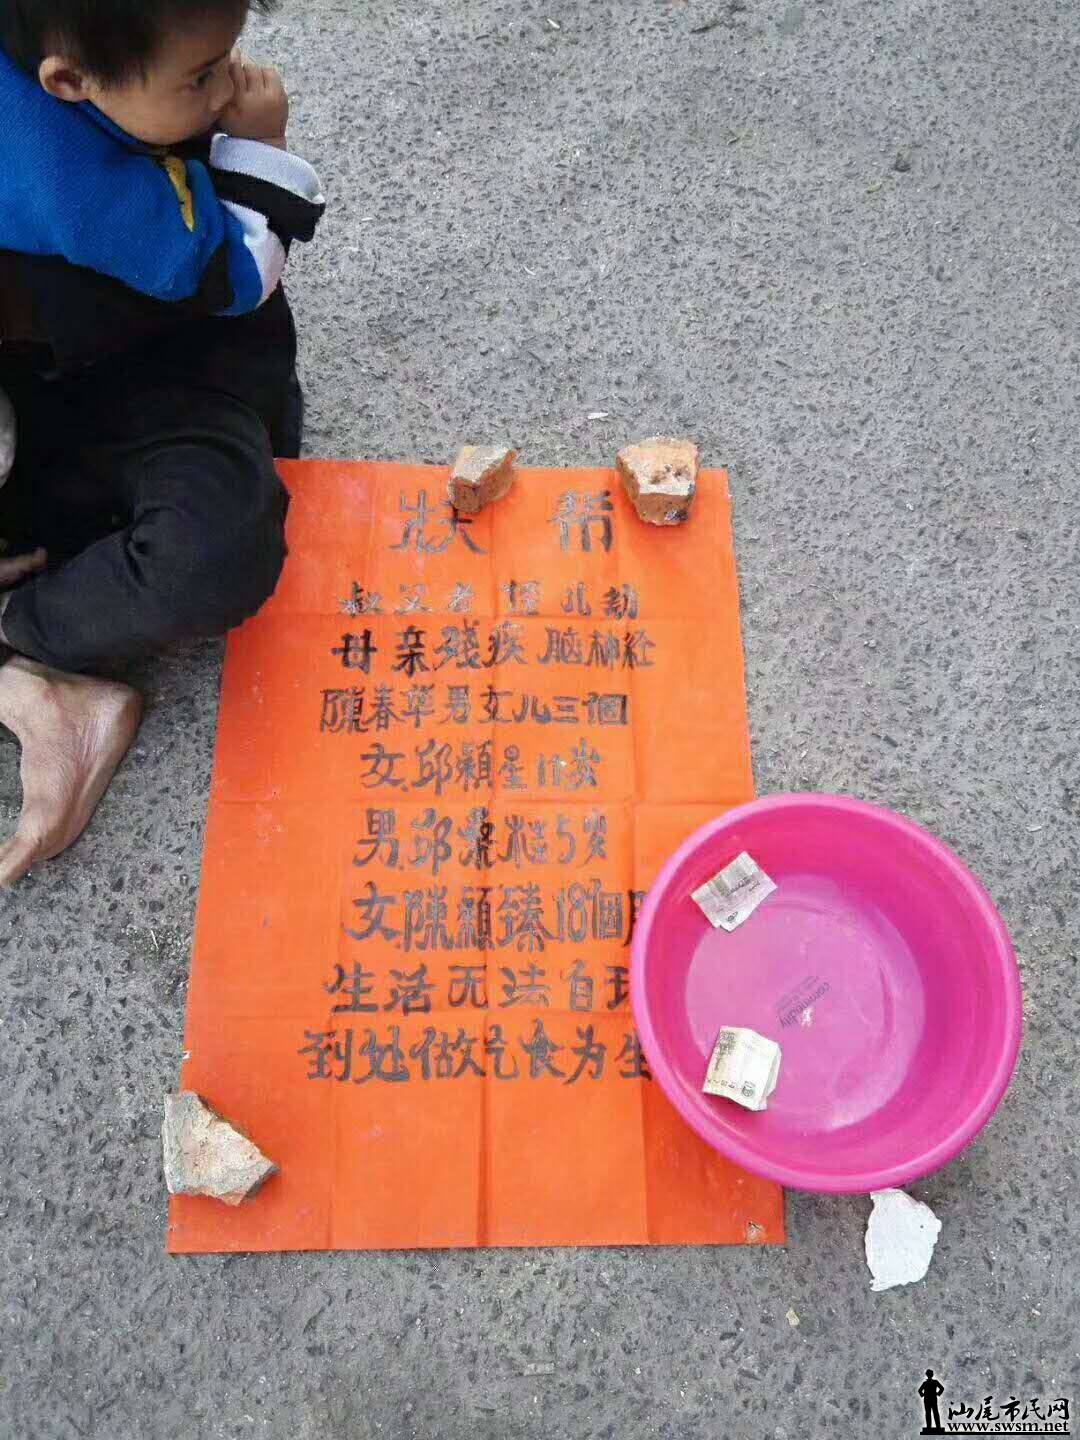 状 帮
叔父老 侄儿幼
母亲残疾脑神经
陳春华男女儿三個
女.邱顆星11岁
男.邱桑桂5岁
女.陳顆臻18個月
生活无法自理
到处做乞食为生
commodity
汕尾市民网
www.swsm.net